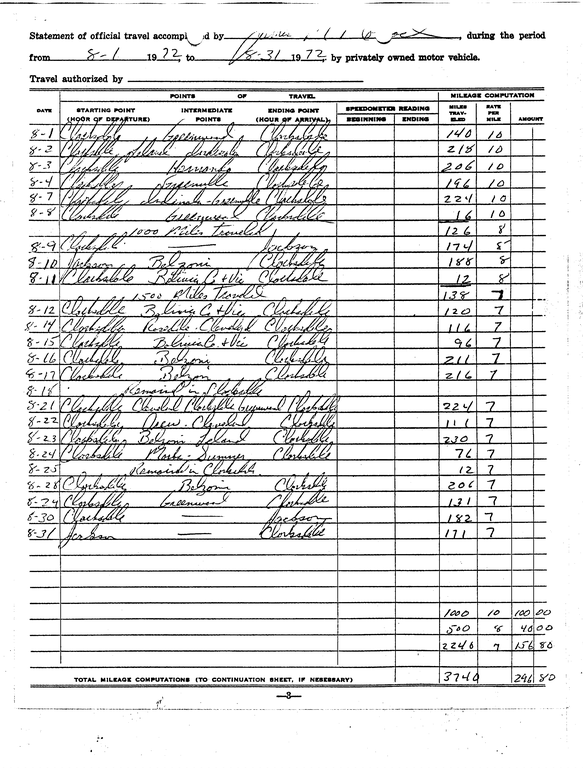 Statement of official travel accompl d by , during the period
from 8-1 1972, to 8-31 1972, by privately owned motor vehicle.
Travel authorized by
POINTS OF TRAVEL MILEAGE COMPUTATION
DATE STARTING POINT (HOUR OF DEPARTURE) INTERMEDIATE POINTS ENDING POINT (HOUR OF ARRIVAL) SPEEDOMETER READING BEGINNING ENDING MILES TRAVELED RATE PER MILE AMOUNT
8-1 Clarksdale Greenwood Clarksdale 140 10
8-2 Clarksdale Clarksdale 218 10
8-3 Clarksdale Hernando Clarksdale 206 10
8-4 Clarksdale Greenville Clarksdale 196 10
8-7 Clarksdale Indianola-Greenville Clarksdale 224 10
8-8 Clarksdale Greenwood Clarksdale 16 10
1000 Miles Traveled 126 8
8-9 Clarksdale — Jackson 174 8
8-10 Jackson Belzoni Clarksdale 188 8
8-11 Clarksdale Bolivar Co & Vic Clarksdale 12 8
1500 Miles Traveled 138 7
8-12 Clarksdale Bolivar Co & Vic Clarksdale 120 7
8-14 Clarksdale Rosedale-Cleveland Clarksdale 116 7
8-15 Clarksdale Bolivar Co. & Vic Clarksdale 96 7
8-16 Clarksdale Belzoni Clarksdale 211 7
8-17 Clarksdale Belzoni Clarksdale 216 7
8-18 Remained in Clarksdale
8-21 Clarksdale Cleveland Clarksdale Greenwood Clarksdale 224 7
8-22 Clarksdale Drew-Cleveland Clarksdale 111 7
8-23 Clarksdale Belzoni Leland Clarksdale 230 7
8-24 Clarksdale Marks-Sumner Clarksdale 76 7
8-25 Remained in Clarksdale 12 7
8-28 Clarksdale Belzoni Clarksdale 206 7
8-29 Clarksdale Greenwood Clarksdale 131 7
8-30 Clarksdale — Jackson 182 7
8-31 Jackson — Clarksdale 171 7
1000 10 100 00
500 8 40 00
2240 7 156 80
TOTAL MILEAGE COMPUTATIONS (TO CONTINUATION SHEET, IF NESESSARY) 3740 296 80
—3—